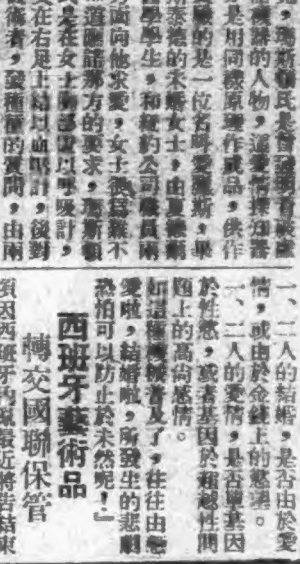 ，瑪斯頓氏是曾發明有
機器的人物，這愛情探知器
是用同樣原理作成品，供作
驗的是一位名叫愛麗斯，畢
泰德的未婚女士，由
學學生，和紐約公司職員兩
面向他求愛，女士很爲難不
知道應諾那方的要求，瑪斯頓
氏是在女士胸部設以呼吸計，
又在右足上結以血吸計，後對
者，發種種的質問，由兩
一、二人的結婚，是否由於愛
情，或由於金錢上的慾望。
一、二人的愛情，是否單基因
於性慾，或者基因於超越性問
題上的高尚感情。
如這種機械普及了，往往由戀
愛啦，結婚啦，所發生的悲劇
恐怕可以防止於未然呢！」
西班牙藝術品
轉交國聯保管
須因西班牙內亂最近將告結束